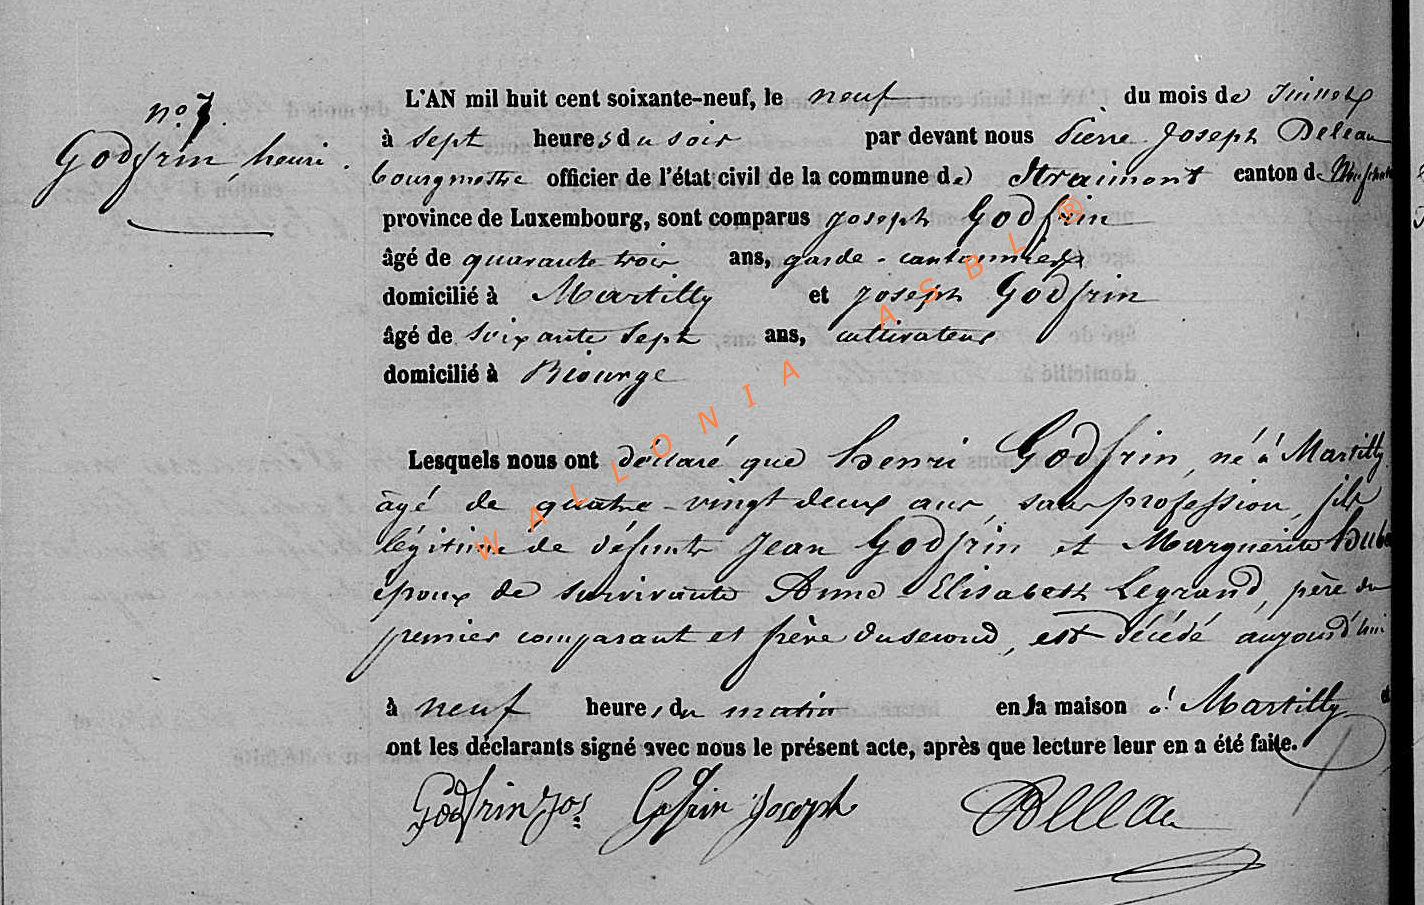 n.o 7.
Godfrin, henri.
L'AN mil huit cent soixante-neuf, le neuf du mois de Juillet
à sept heures du soir par devant nous Pierre Joseph Deleau
bourgmestre officier de l'état civil de la commune de Straimont canton de
province de Luxembourg, sont comparus Joseph Godfrin
âgé de quarante trois ans, garde-cantonnier
domicilié à Martilly et Joseph Godfrin
âgé de soixante sept ans, cultivateur
domicilié à Biourge
Lesquels nous ont déclaré que henri Godfrin, né à Martilly
âgé de quatre-vingt deux ans, sans profession, fils
légitime de défunts Jean Godfrin et Marguerite
époux de survivante Anne-Elisabeth Legrand, père du
premier comparant et frère du second, est décédé aujourd'hui
à neuf heures du matin en la maison à Martilly
ont les déclarants signé avec nous le présent acte, après que lecture leur en a été faite.
Godfrin Jos Godfrin Joseph Deleau
WALLONIA ASBL ®